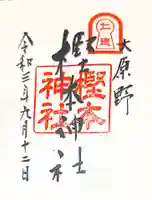 大原野
樫本神社
樫本神社
令和三年六月十二日